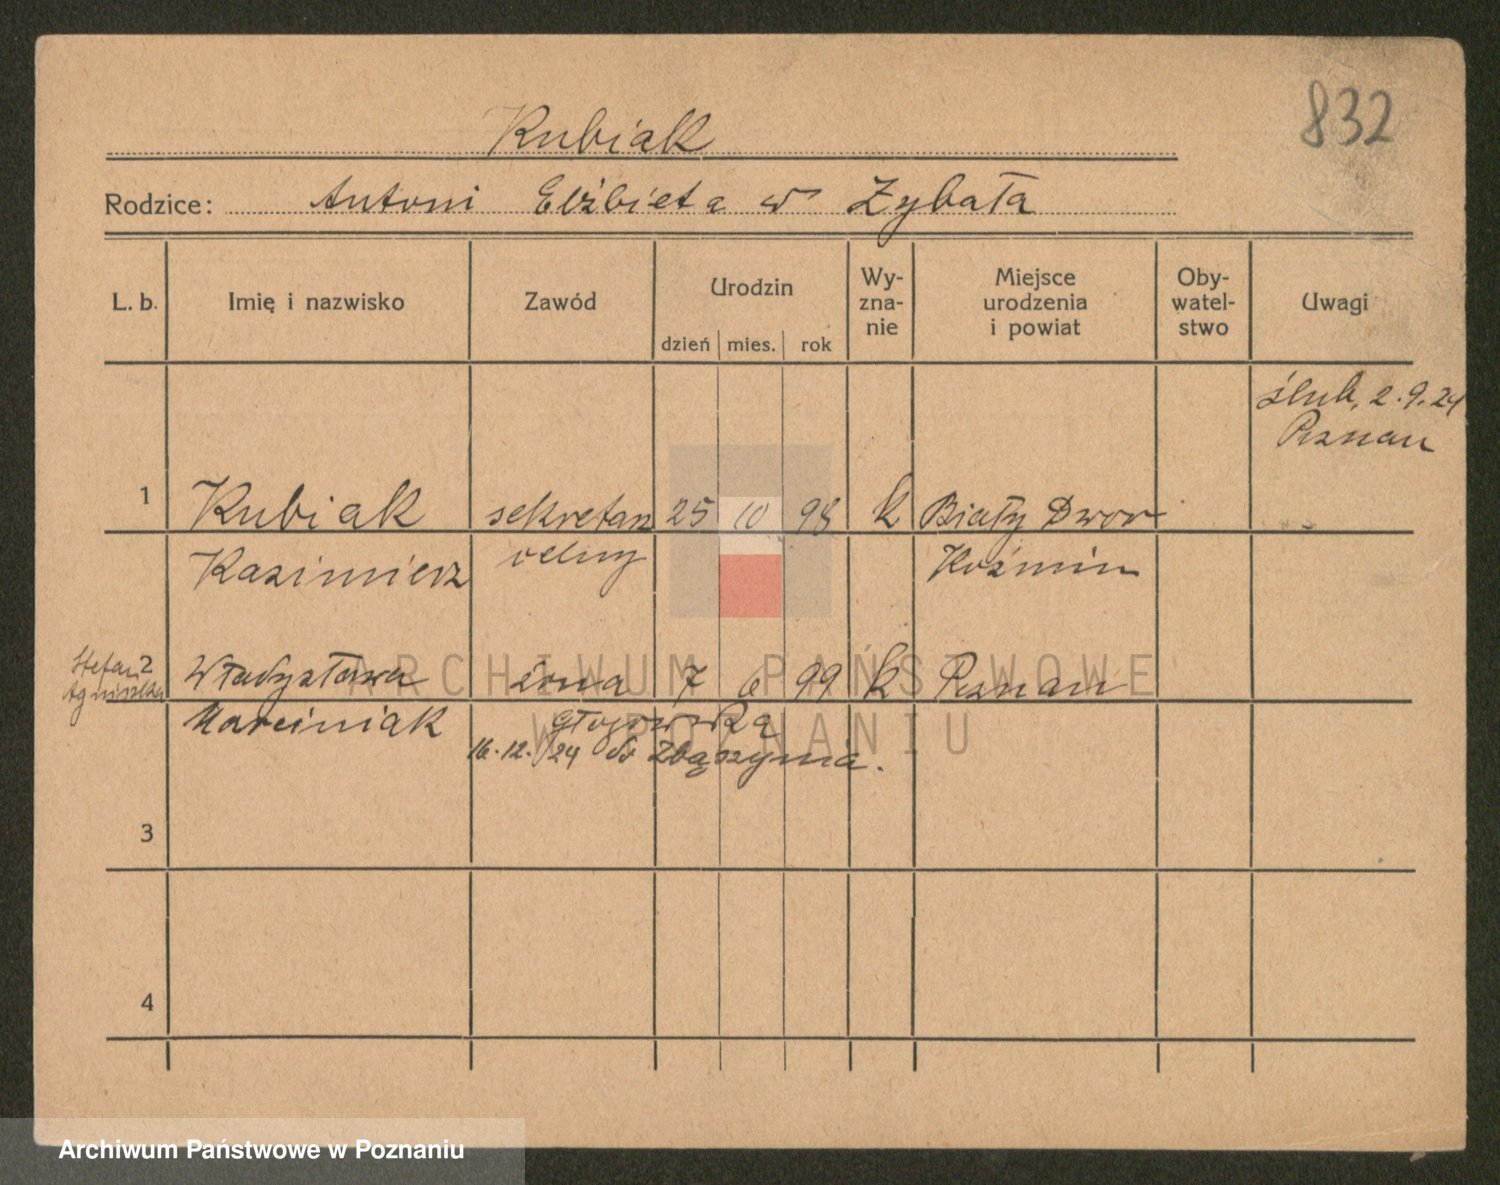 832
Kubiak
Rodzice: Antoni Elżbieta w Zybała
L. b. Imię i nazwisko Zawód Urodzin dzień mies. rok Wy-zna-nie Miejsce urodzenia i powiat Oby-watel-stwo Uwagi
ślub. 2.9.24
Poznan
1 Kubiak sekretarz 25 10 98 k Biały Dwor
Kazimierz celny Koźmin
Stefan
Agnieszka
2 Władysława żona 7 6 99 k Poznan
Marciniak Głogowska
16.12.24 do Zbąszynia.
3
4
ARCHIWUM PAŃSTWOWE
W POZNANIU
Archiwum Państwowe w Poznaniu